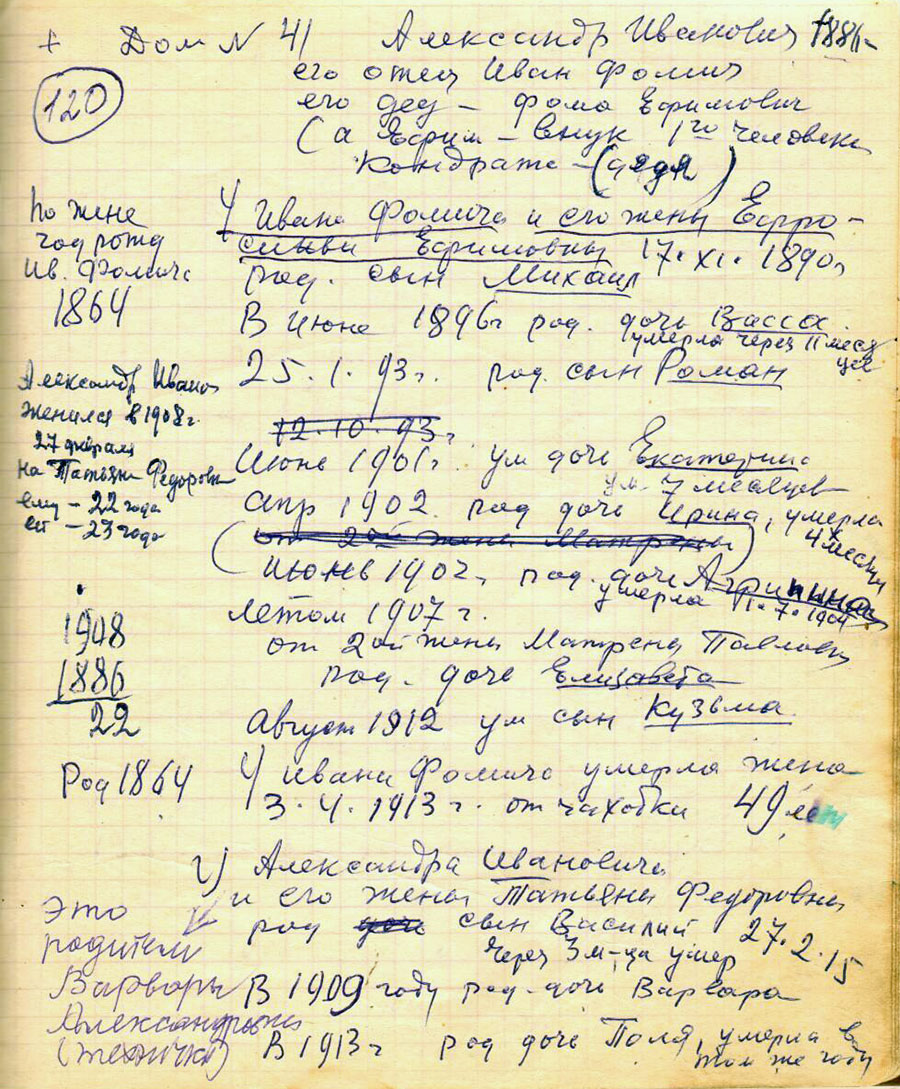 + Дом № 41 Александр Иванович 1886г
его отец Иван Фомич
120
его дед – Фома Ефимович
(а Ефрим – внук 1го человека
Кондрата – (дядя)
По жене
год рожд
Ив. Фомича
1864
У Ивана Фомича и его жены Евро-
синьи Ефимовны 17.XI.1890г
род. сын Михаил
В июне 1896г род. дочь Васса.
умерла через 11 меся
цев
25.1.93г. род. сын Роман
Александр Иванов
женился в 1908г.
27 февраля
на Татьяне Федоровн
ему – 22 года
ей – 23 года
12.10.93г
Июнь 1901г. ум дочь Екатерина
ум. 7 месяцев
Апр 1902. род дочь Ирина, умерла
4 месяца
(от 2ой жены Матрены)
июнь 1902г. род. дочь Агриппина
умерла 11.7.1904.
Летом 1907г.
от 2ой жены Матрена Павловн
род. дочь Елизавета
1908
1886
22
Август 1912 ум сын Кузьма.
Род 1864
У Ивана Фомича умерла жена
3.4.1913г. от чахотки 49 лет
У Александра Ивановича
и его жены Татьяны Федоровны
род дочь сын Василий 27.2.15
Через 3 м-ца умер
Это
родители
Варвары
Александровны
В 1909 году род. дочь Варвара
В 1913г род дочь Поля, умерла в
том же году